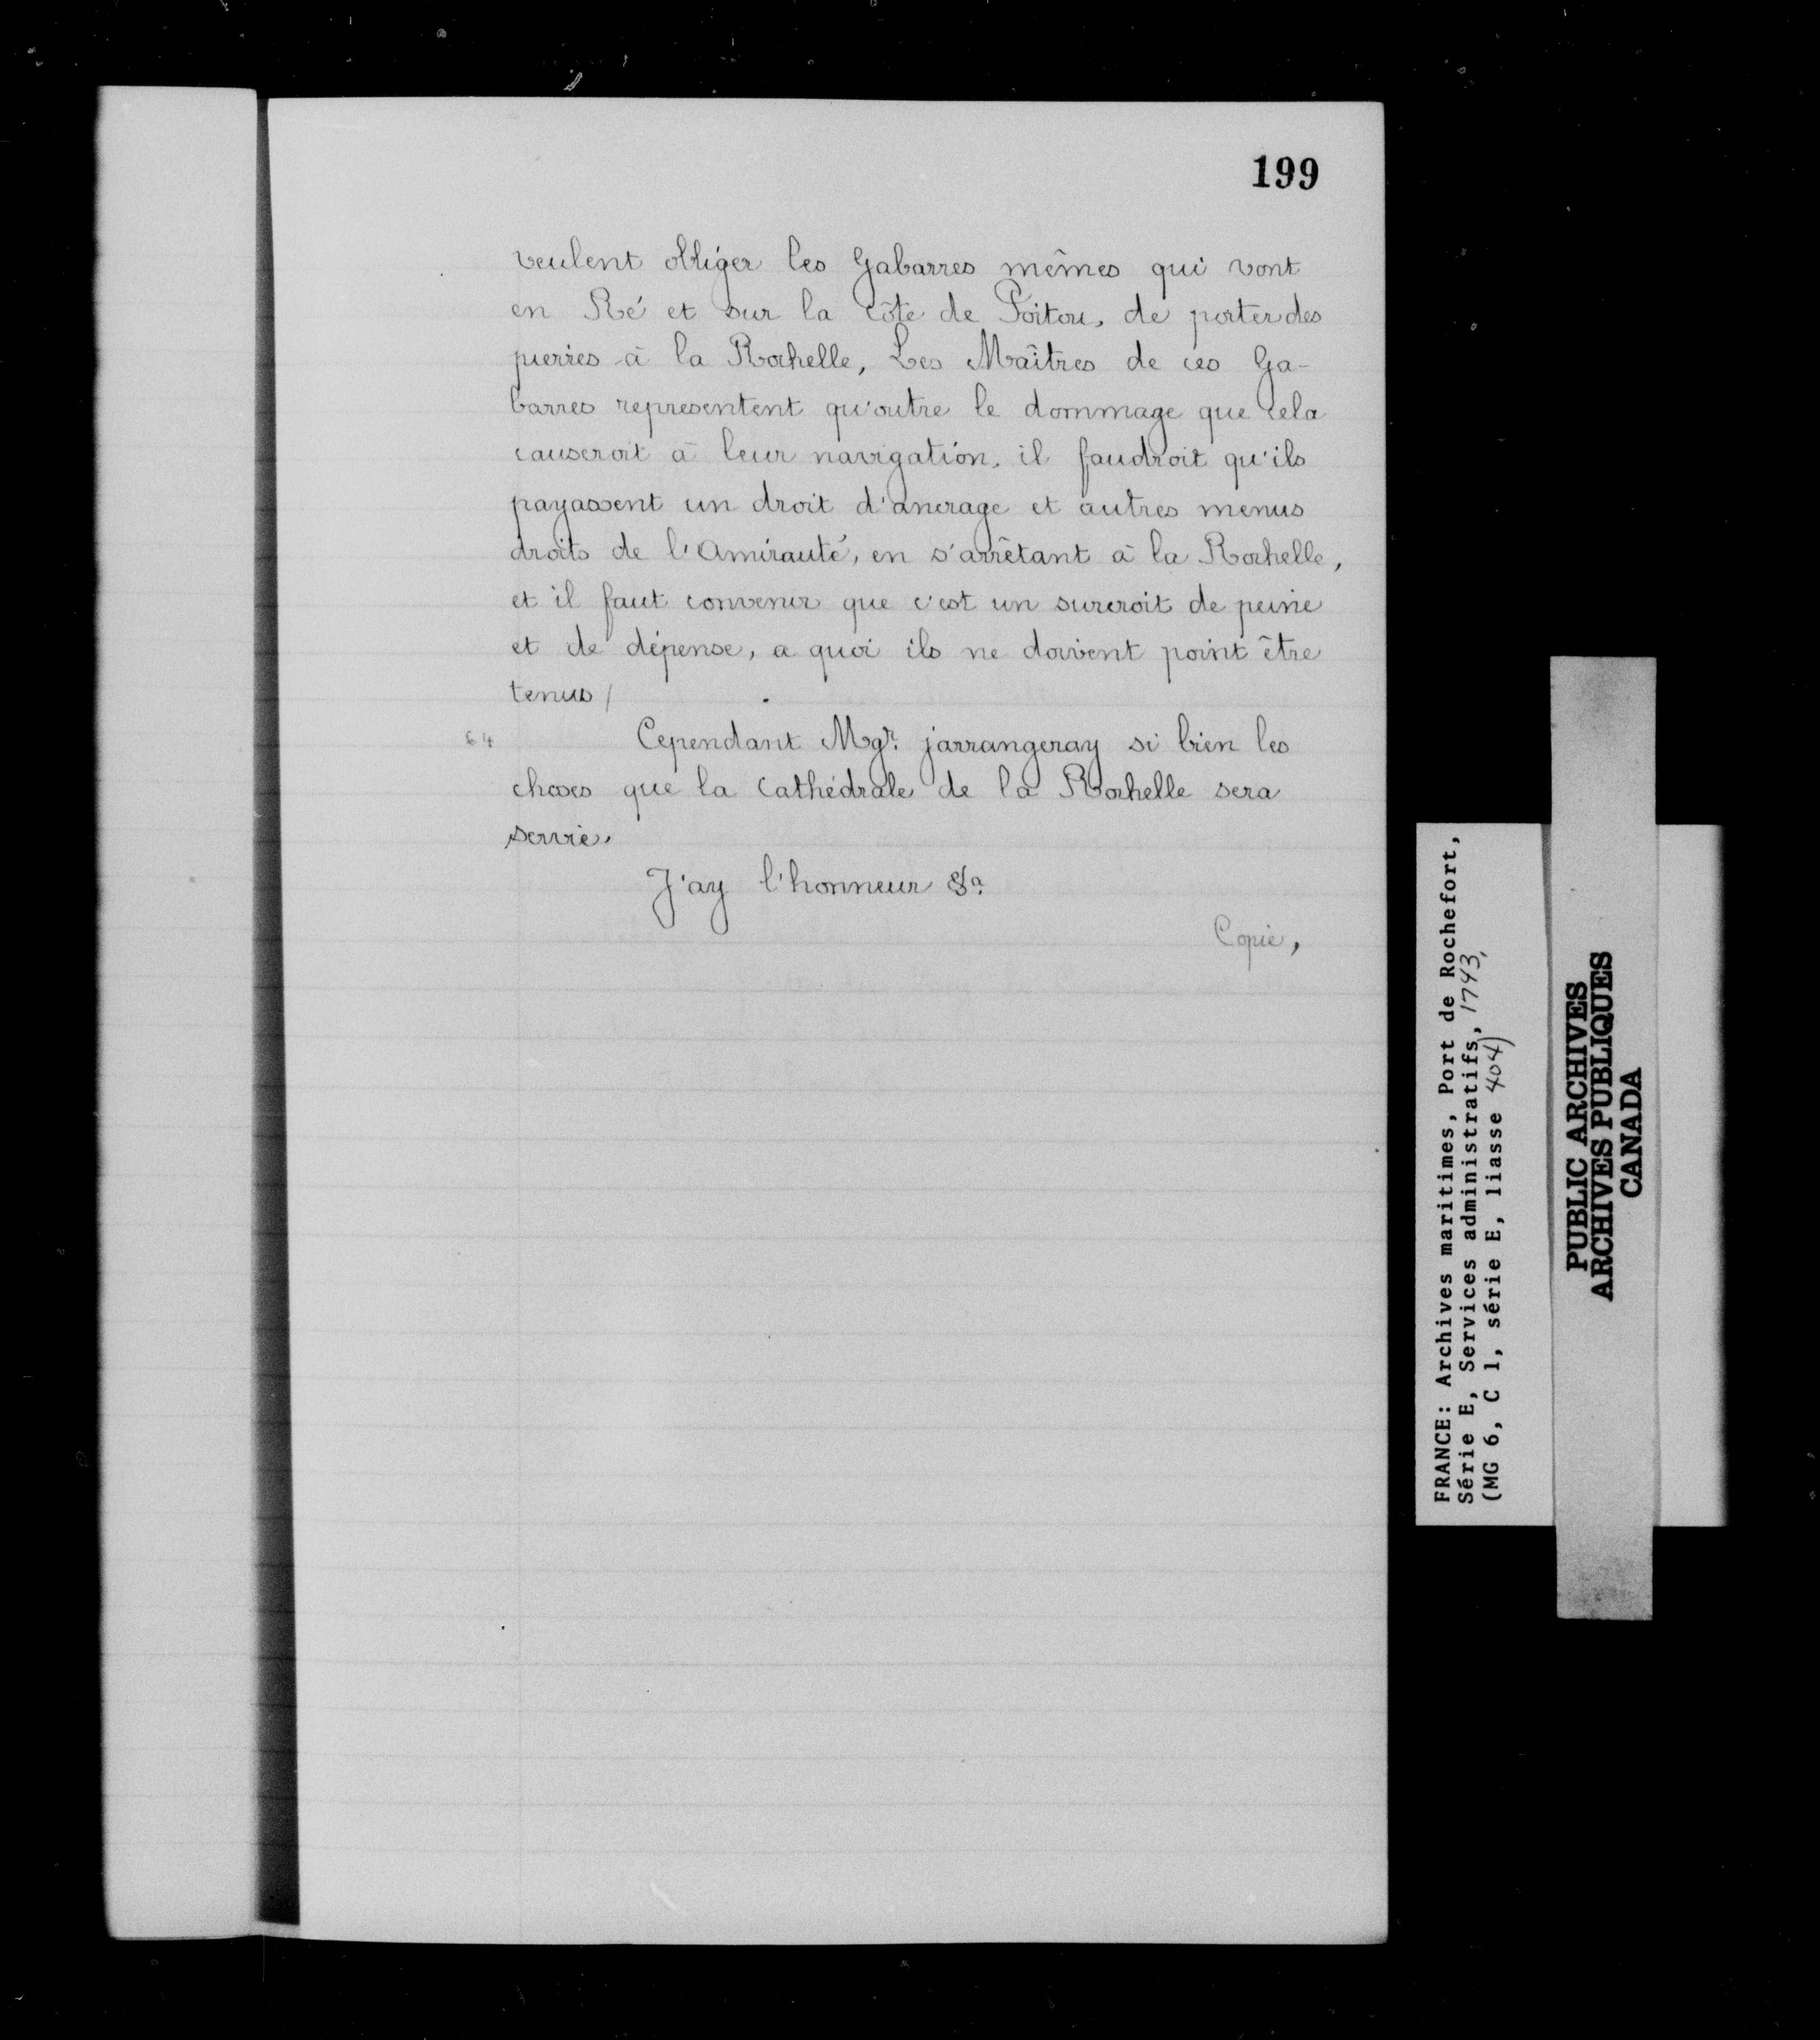 199
veulent obliger les Gabarres mêmes qui vont
en Ré et sur la côte de Poitou, de porter des
pierres à la Rochelle, Les Maîtres de ces Ga-
barres representent qu'outre le dommage que cela
causeroit à leur navigation, il faudroit qu'ils
payassent un droit d'ancrage et autres menus
droits de l'Amirauté, en s'arrêtant à la Rochelle,
et il faut convenir que c'est un surcroit de peine
et de dépense, a quoi ils ne doivent point être
tenus /
64 Cependant Mgr. jarrangeray si bien les
choses que la Cathédrale de la Rochelle sera
servie.
J'ay l'honneur &a.
Copie,
FRANCE: Archives maritimes, Port de Rochefort,
Série E, Services administratifs, 1743,
(MG 6, C 1, série E, liasse 404)
PUBLIC ARCHIVES
ARCHIVES PUBLIQUES
CANADA